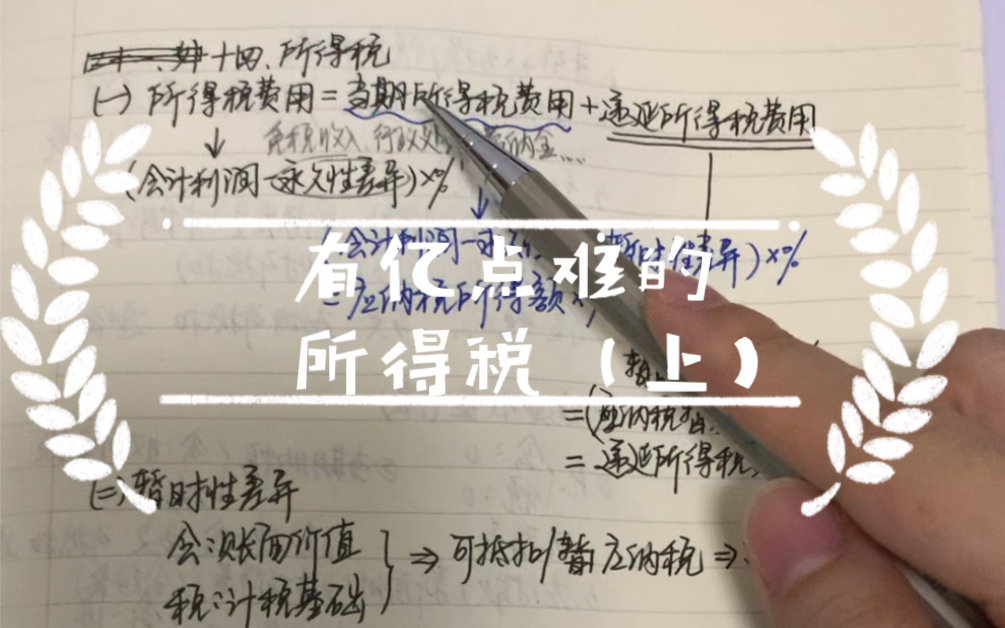 十四、所得税
(一) 所得税费用=当期所得税费用+递延所得税费用
免税收入、行政处 纳金....
(会计利润-永久性差异)×%
(会计利润-永 暂时性差异)×%
=应纳税所得额×
有亿点难的
所得税(上)
=(应纳税
=递延所得税
(二)暂时性差异
会:账面价值
税:计税基础
⇒可抵扣/暂 应纳税⇒